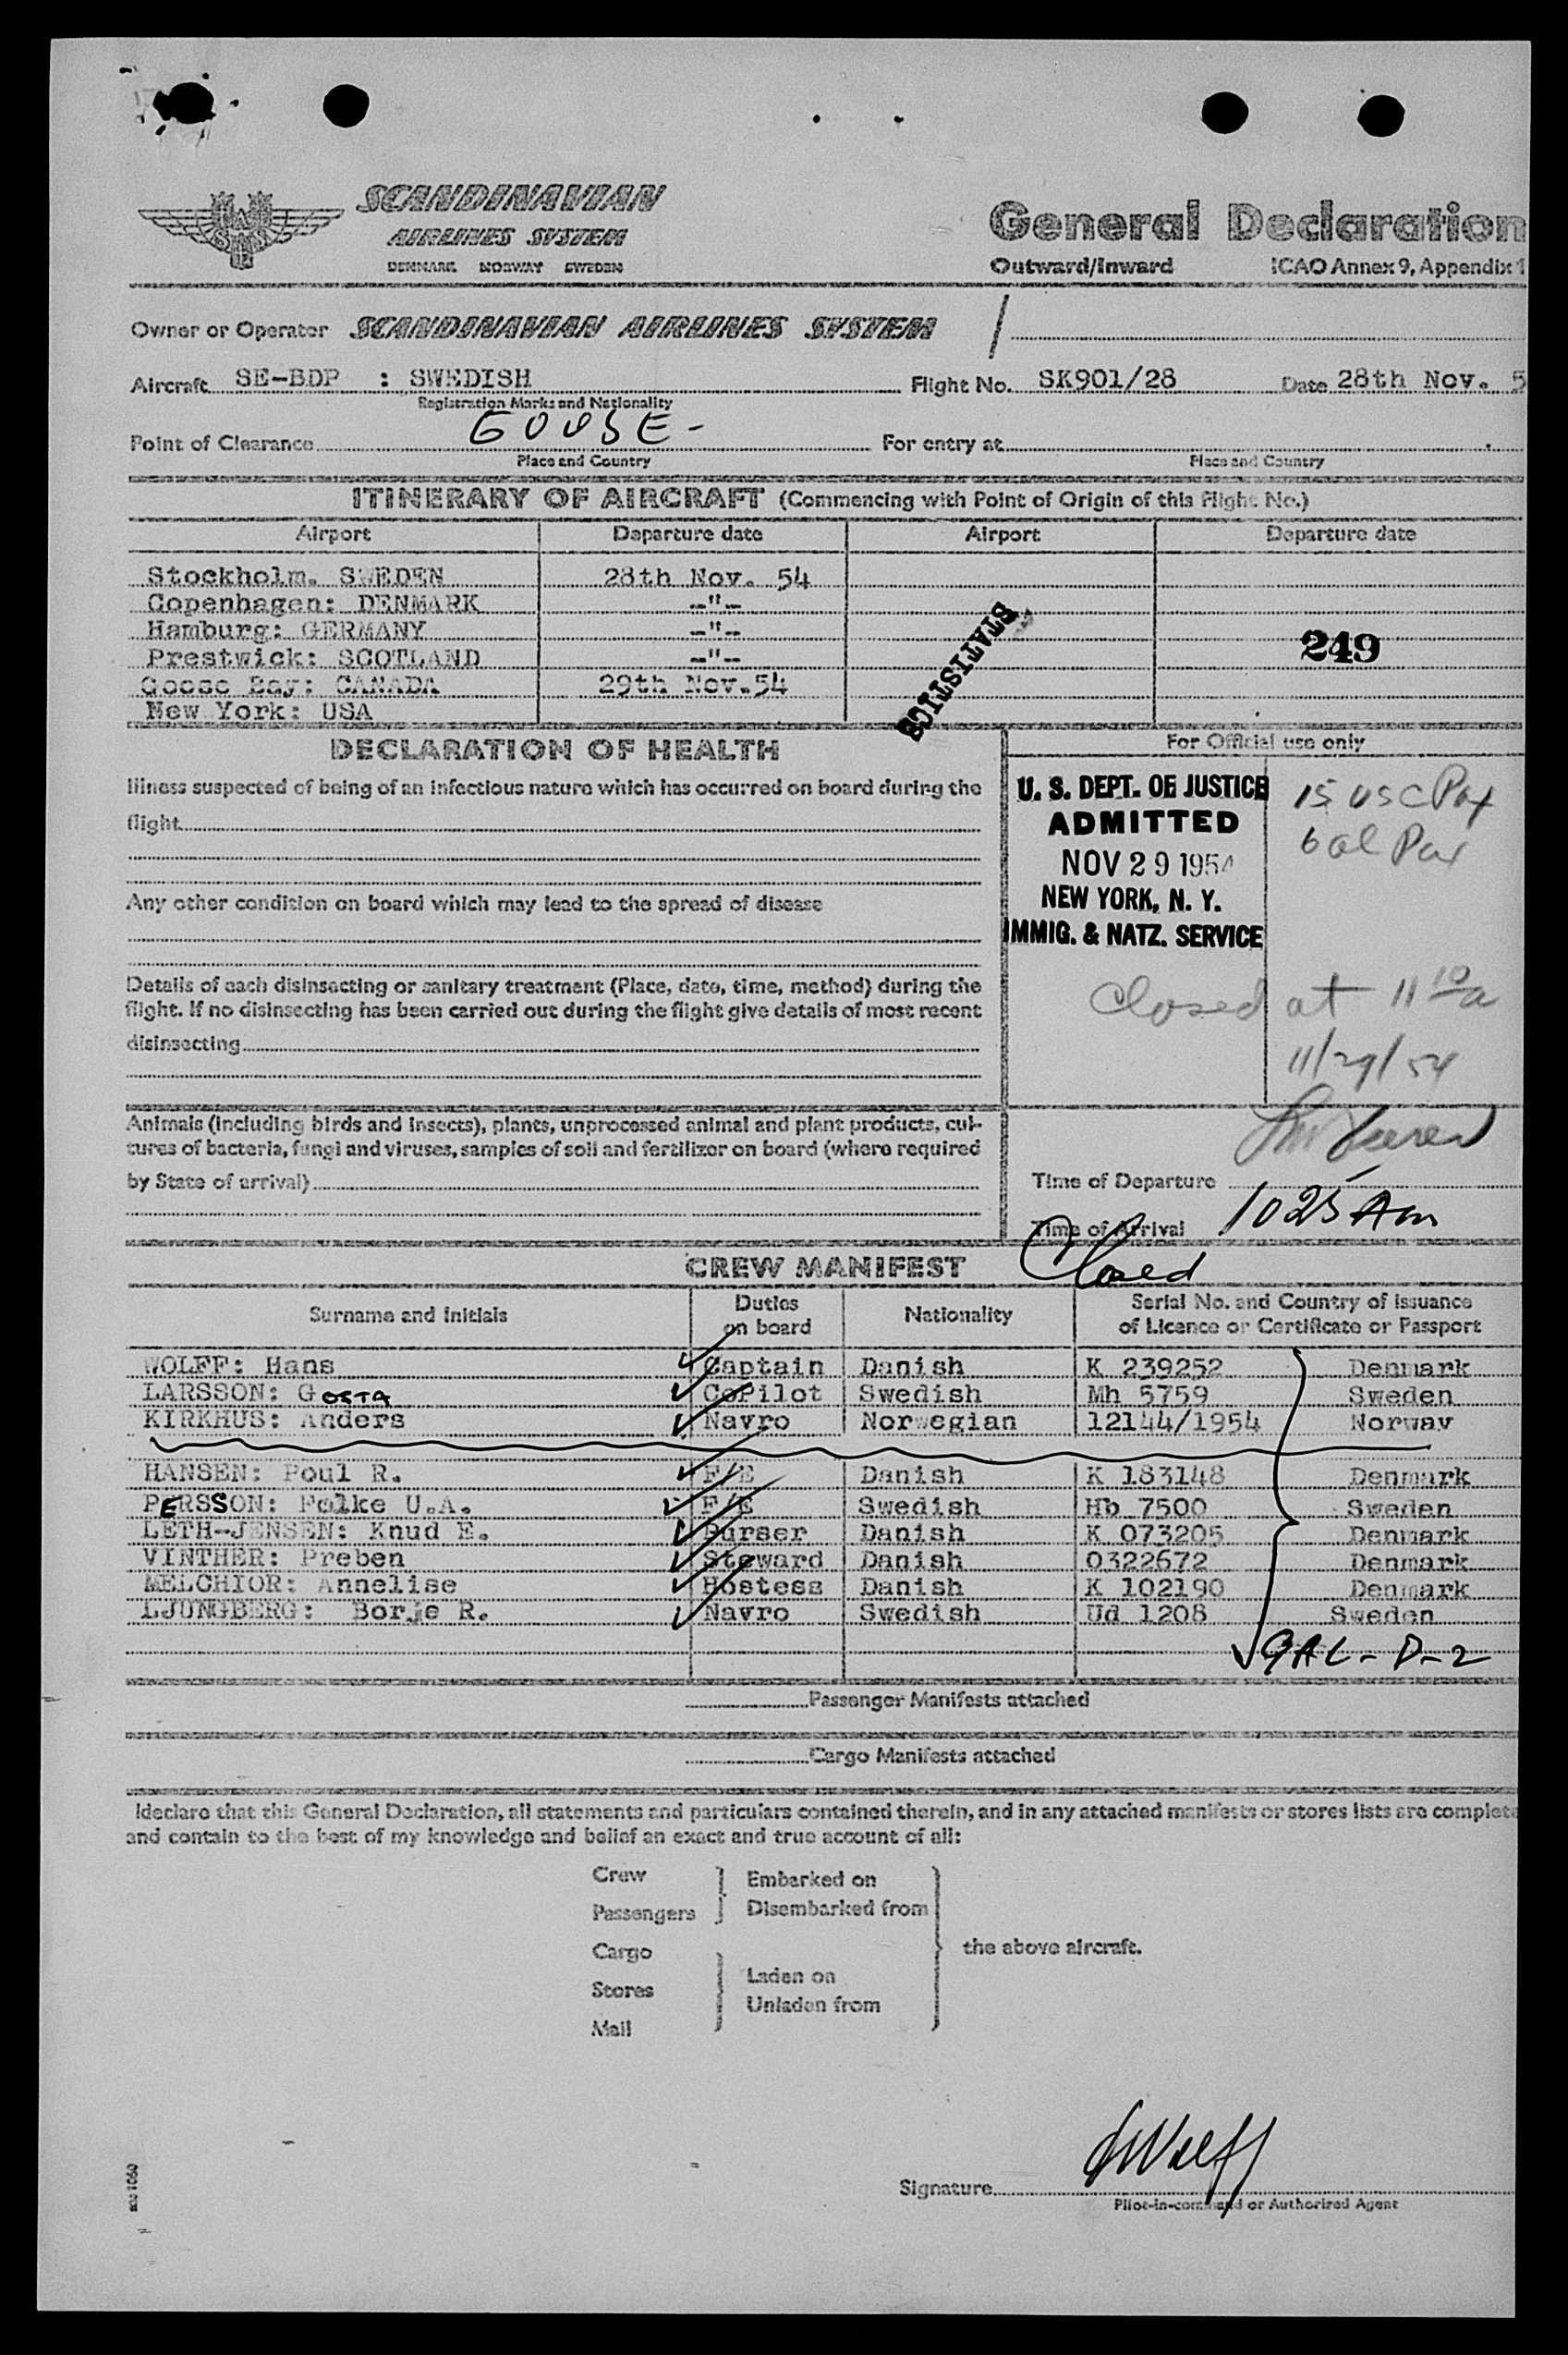 SCANDINAVIAN
AIRLINES SYSTEM
DENMARK NORWAY SWEDEN
General Declaration
Outward/Inward ICAO Annex 9, Appendix 1
Owner or Operator SCANDINAVIAN AIRLINES SYSTEM
Aircraft SE-BDP : SWEDISH Flight No. SK901/28 Date 28th Nov. 5
Registration Marks and Nationality
Point of Clearance GOOSE - For entry at
Place and Country Place and Country
ITINERARY OF AIRCRAFT (Commencing with Point of Origin of this Flight No.)
Airport Departure date Airport Departure date
Stockholm. SWEDEN 28th Nov. 54
Copenhagen: DENMARK -"-
Hamburg: GERMANY -"-
Prestwick: SCOTLAND -"-
Goose Bay: CANADA 29th Nov.54
New York: USA
STATISTICS
249
DECLARATION OF HEALTH
Illness suspected of being of an infectious nature which has occurred on board during the
flight
Any other condition on board which may lead to the spread of disease
Details of each disinsecting or sanitary treatment (Place, date, time, method) during the
flight. If no disinsecting has been carried out during the flight give details of most recent
disinsecting
Animals (including birds and insects), plants, unprocessed animal and plant products, cul-
tures of bacteria, fungi and viruses, samples of soil and fertilizer on board (where required
by State of arrival)
For Official use only
U. S. DEPT. OF JUSTICE
ADMITTED
NOV 29 1954
NEW YORK, N. Y.
IMMIG. & NATZ. SERVICE
15 USC Pax
6 al Pax
Closed at 11 10 a
11/29/54
Time of Departure
Time of Arrival 1025 Am
Closed
CREW MANIFEST
Surname and Initials Duties on board Nationality Serial No. and Country of Issuance of Licence or Certificate or Passport
WOLFF: Hans Captain Danish K 239252 Denmark
LARSSON: GOSTA CoPilot Swedish Mh 5759 Sweden
KIRKHUS: Anders Navro Norwegian 12144/1954 Norway
HANSEN: Poul R. F/E Danish K 183148 Denmark
PERSSON: Folke U.A. F/E Swedish Hb 7500 Sweden
LETH-JENSEN: Knud E. Purser Danish K 073205 Denmark
VINTHER: Preben Steward Danish 0322672 Denmark
MELCHIOR: Annelise Hostess Danish K 102190 Denmark
LJUNGBERG: Borje R. Navro Swedish Ud 1208 Sweden
9AL - D-2
Passenger Manifests attached
Cargo Manifests attached
I declare that this General Declaration, all statements and particulars contained therein, and in any attached manifests or stores lists are complete
and contain to the best of my knowledge and belief an exact and true account of all:
Crew
Passengers
Embarked on
Disembarked from
Cargo
Stores
Mail
Laden on
Unladen from
the above aircraft.
Signature HWolff
Pilot-in-command or Authorized Agent